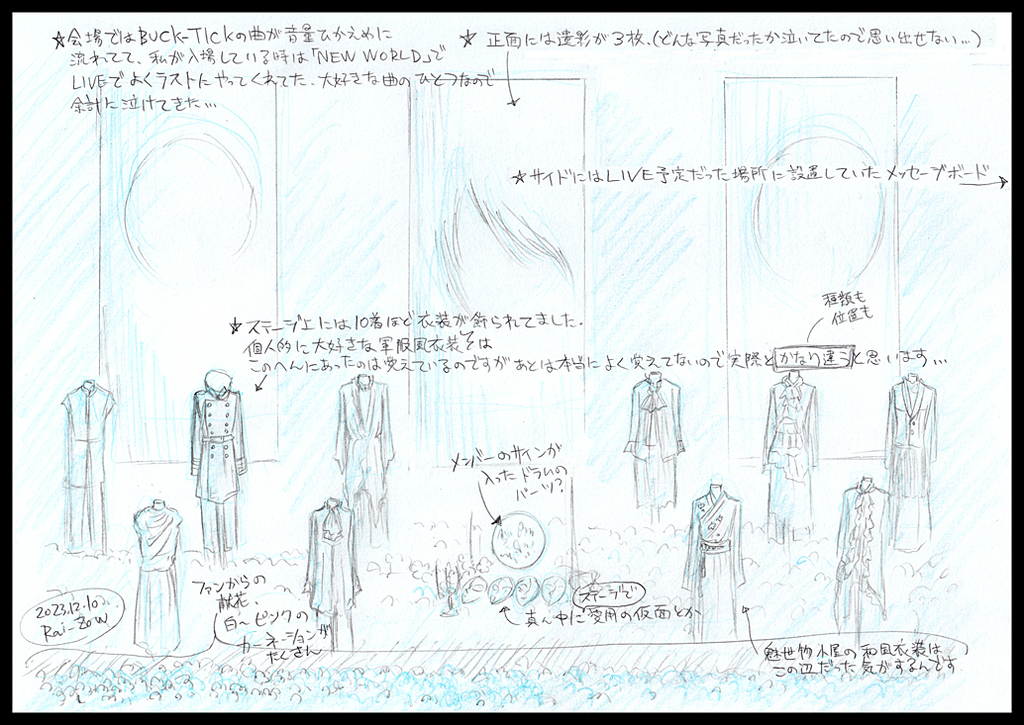 ★会場ではBUCK-TICKの曲が音量ひかえめに
流れてて、私が入場している時は「NEW WORLD」で
LIVEでよくラストにやってくれてた、大好きな曲のひとつなので
余計に泣けてきた…
★ 正面には遺影が3枚、(どんな写真だったか泣いてたので思い出せない…)
★サイドにはLIVE予定だった場所に設置していたメッセージボード
★ステージ上には10着ほど衣装が飾られてました。
個人的に大好きな軍服風衣装とそは
このへんにあったのは覚えているのですがあとは本当によく覚えてないので実際とかなり違うと思います…
種類も
位置も
メンバーのサインが
入ったドラムの
パーツ?
ステージで
真ん中に愛用の仮面とか
ファンからの
献花、
白〜ピンクの
カーネーションが
たくさん
魅世物小屋の和風衣装は
この辺だった気がするんです
2023.12.10
Rai-Zow